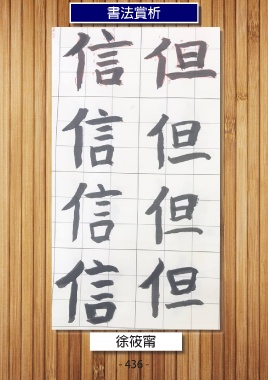 書法賞析
但
但
但
但
信
信
信
信
徐筱甯
- 436 -